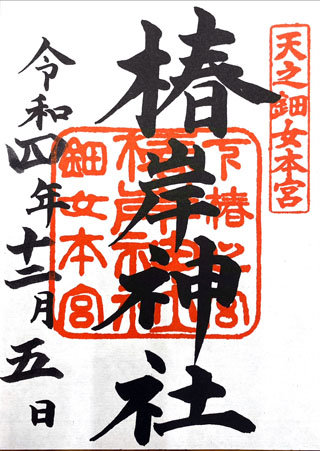 天之鈿女本宮
椿岸神社
令和四年十二月五日
鈿女本宮